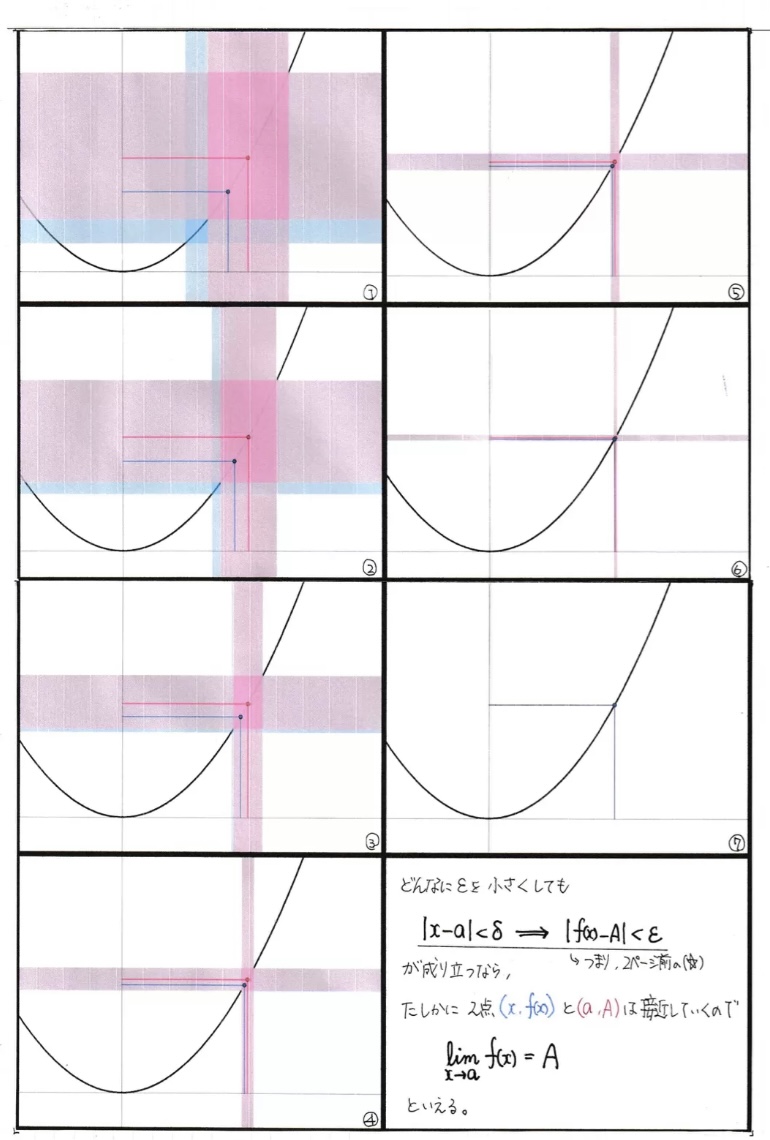 ①
②
③
④
⑤
⑥
⑦
どんなにεを小さくしても
|x-a|<δ ⟹ |f(x)-A|<ε
↳つまり、2ページ前の
が成り立つなら，
たしかに2点(x, f(x))と(a, A)は接近していくので
lim f(x) = A
x→a
といえる。